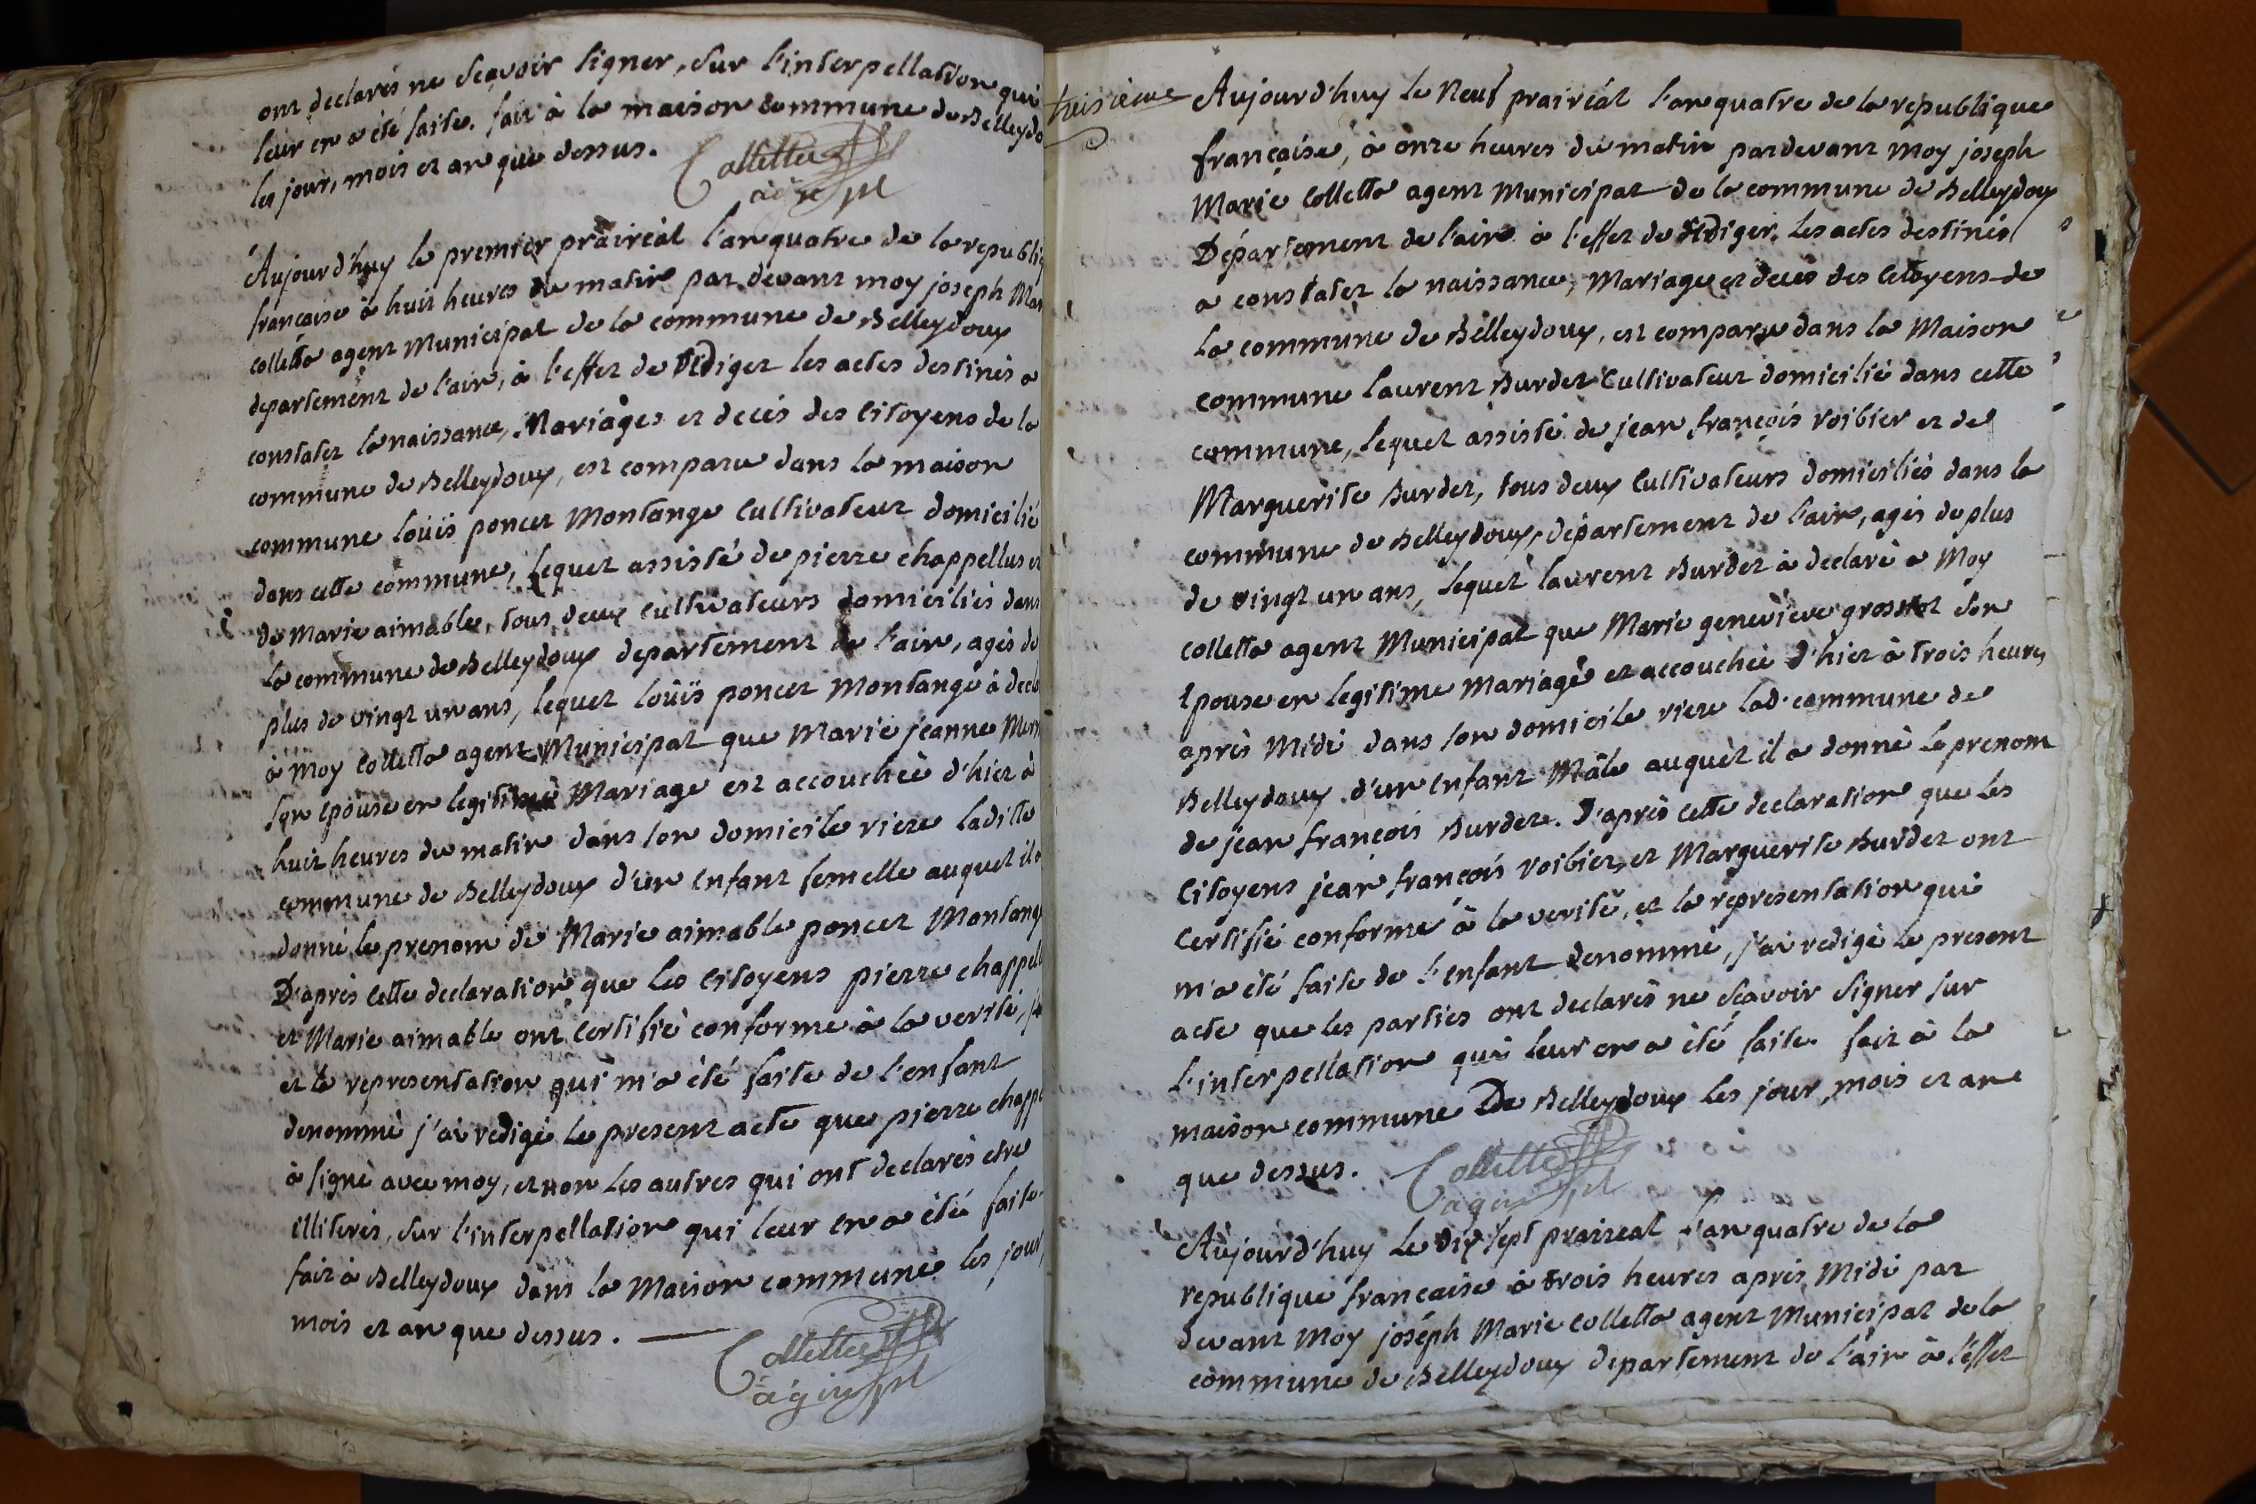 ont declarés ne sçavoir signer, sur l'interpellation qui
leur en a été faite. fait à la maison commune de Belleydo
les jour, mois et an que dessus.
Collettaz
agent mpl
Aujourd'huy le premier prairéal l'an quatre de la republiq
française à huit heures du matin par devant moy joseph Mar
colletta agent Municipal de la commune de Belleydoux
departement de l'air, à l'effet de rédiger les actes destinés a
constater la naissance, Mariages et decés des Citoyens de la
commune de Belleydoux, est comparu dans la maison
commune loüis poncet Montange Cultivateur domicilié
dans cette commune, lequel assisté de pierre chappellus et
de Marie aimable, tous deux cultivateurs domiciliés dans
la commune de Belleydoux departement de l'air, agés de
plus de vingt un ans, lequel loüis poncet Montange à decla
à moy Colletta agent Municipal que Marie jeanne Merm
son épouse en legitime Mariage est accouchée d'hier à
huit heures du matin dans son domicile riere laditte
commune de Belleydoux d'un enfant femelle auquel il a
donné le prenom de Marie aimable poncet Montange
D'après cette declaration que les Citoyens pierre chappell
et Marie aimable ont certifié conforme à la verité,
et la representation qui m'a été faite de l'enfant
denommé j'ai redigé le present acte que pierre chappe
à signé avec moy, et non les autres qui ont declarés etre
illiterés, sur l'interpellation qui leur en a été faite.
fait à Belleydoux dans la Maison commune les jour,
mois et an que dessus.
Collettaz
agent mpl
troisieme
Aujourd'huy le Neuf prairéal l'an quatre de la republique
française, à onze heures du matin pardevant moy joseph
Marie Colletta agent Municipal de la commune de Belleydoux
Département de l'air à l'effet de rédiger. Les actes destinés
a constater la naissance, Mariage et decés des Citoyens de
la commune de Belleydoux, est comparu dans la Maison
commune laurent Burdet Cultivateur domicilié dans cette
commune, lequel assisté de jean françois voibier et de
Marguerite Burdet, tous deux Cultivateurs domiciliés dans la
commune de Belleydoux, département de l'air, agés de plus
de vingt un ans, lequel laurent Burdet à declaré a Moy
colletta agent Municipal que Marie genevieve grosset son
Epouse en legitime Mariage est accouchée d'hier à trois heures
après Midi dans son domicile riere lad. commune de
Belleydoux d'un enfant Mâle auquel il a donné le prenom
de jean françois Burdet. D'après cette declaration que les
Citoyens jean françois voibier, et Marguerite Burdet ont
certifié conforme à la verité, et la representation qui
m'a été faite de l'enfant denommé, j'ai redigé le present
acte que les parties ont declarés ne sçavoir signer sur
l'interpellation qui leur en a été faite. fait à la
maison commune De Belleydoux les jour, mois et an
que dessus.
Collettaz
agent mpl
Aujourd'huy le Dix sept prairéal l'an quatre de la
republique française à trois heures après Midi par
devant Moy joséph Marie Colletta agent Municipal de la
commune de Belleydoux departement de l'air à l'effet